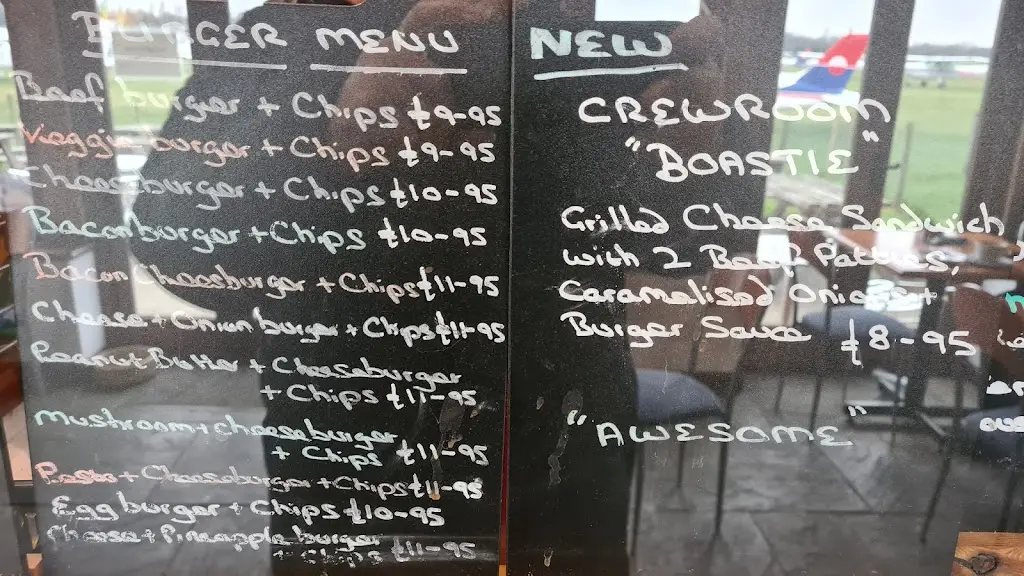 BURGER MENU
Beef burger + Chips £9-95
Veggie burger + Chips £9-95
Cheeseburger + Chips £10-95
Baconburger + Chips £10-95
Bacon Cheeseburger + Chips £11-95
Cheese + Onion burger + Chips £11-95
Peanut Butter + Cheeseburger
+ Chips £11-95
Mushroom + cheeseburger
+ Chips £11-95
Pesto + Cheeseburger + Chips £11-95
Egg burger + Chips £10-95
Cheese + Pineapple burger
+ Chips £11-95
NEW
CREWROOM
"BOASTIE"
Grilled Cheese Sandwich
with 2 Beef Patties,
Caramelised Onions +
Burger Sauce £8-95
"AWESOME"